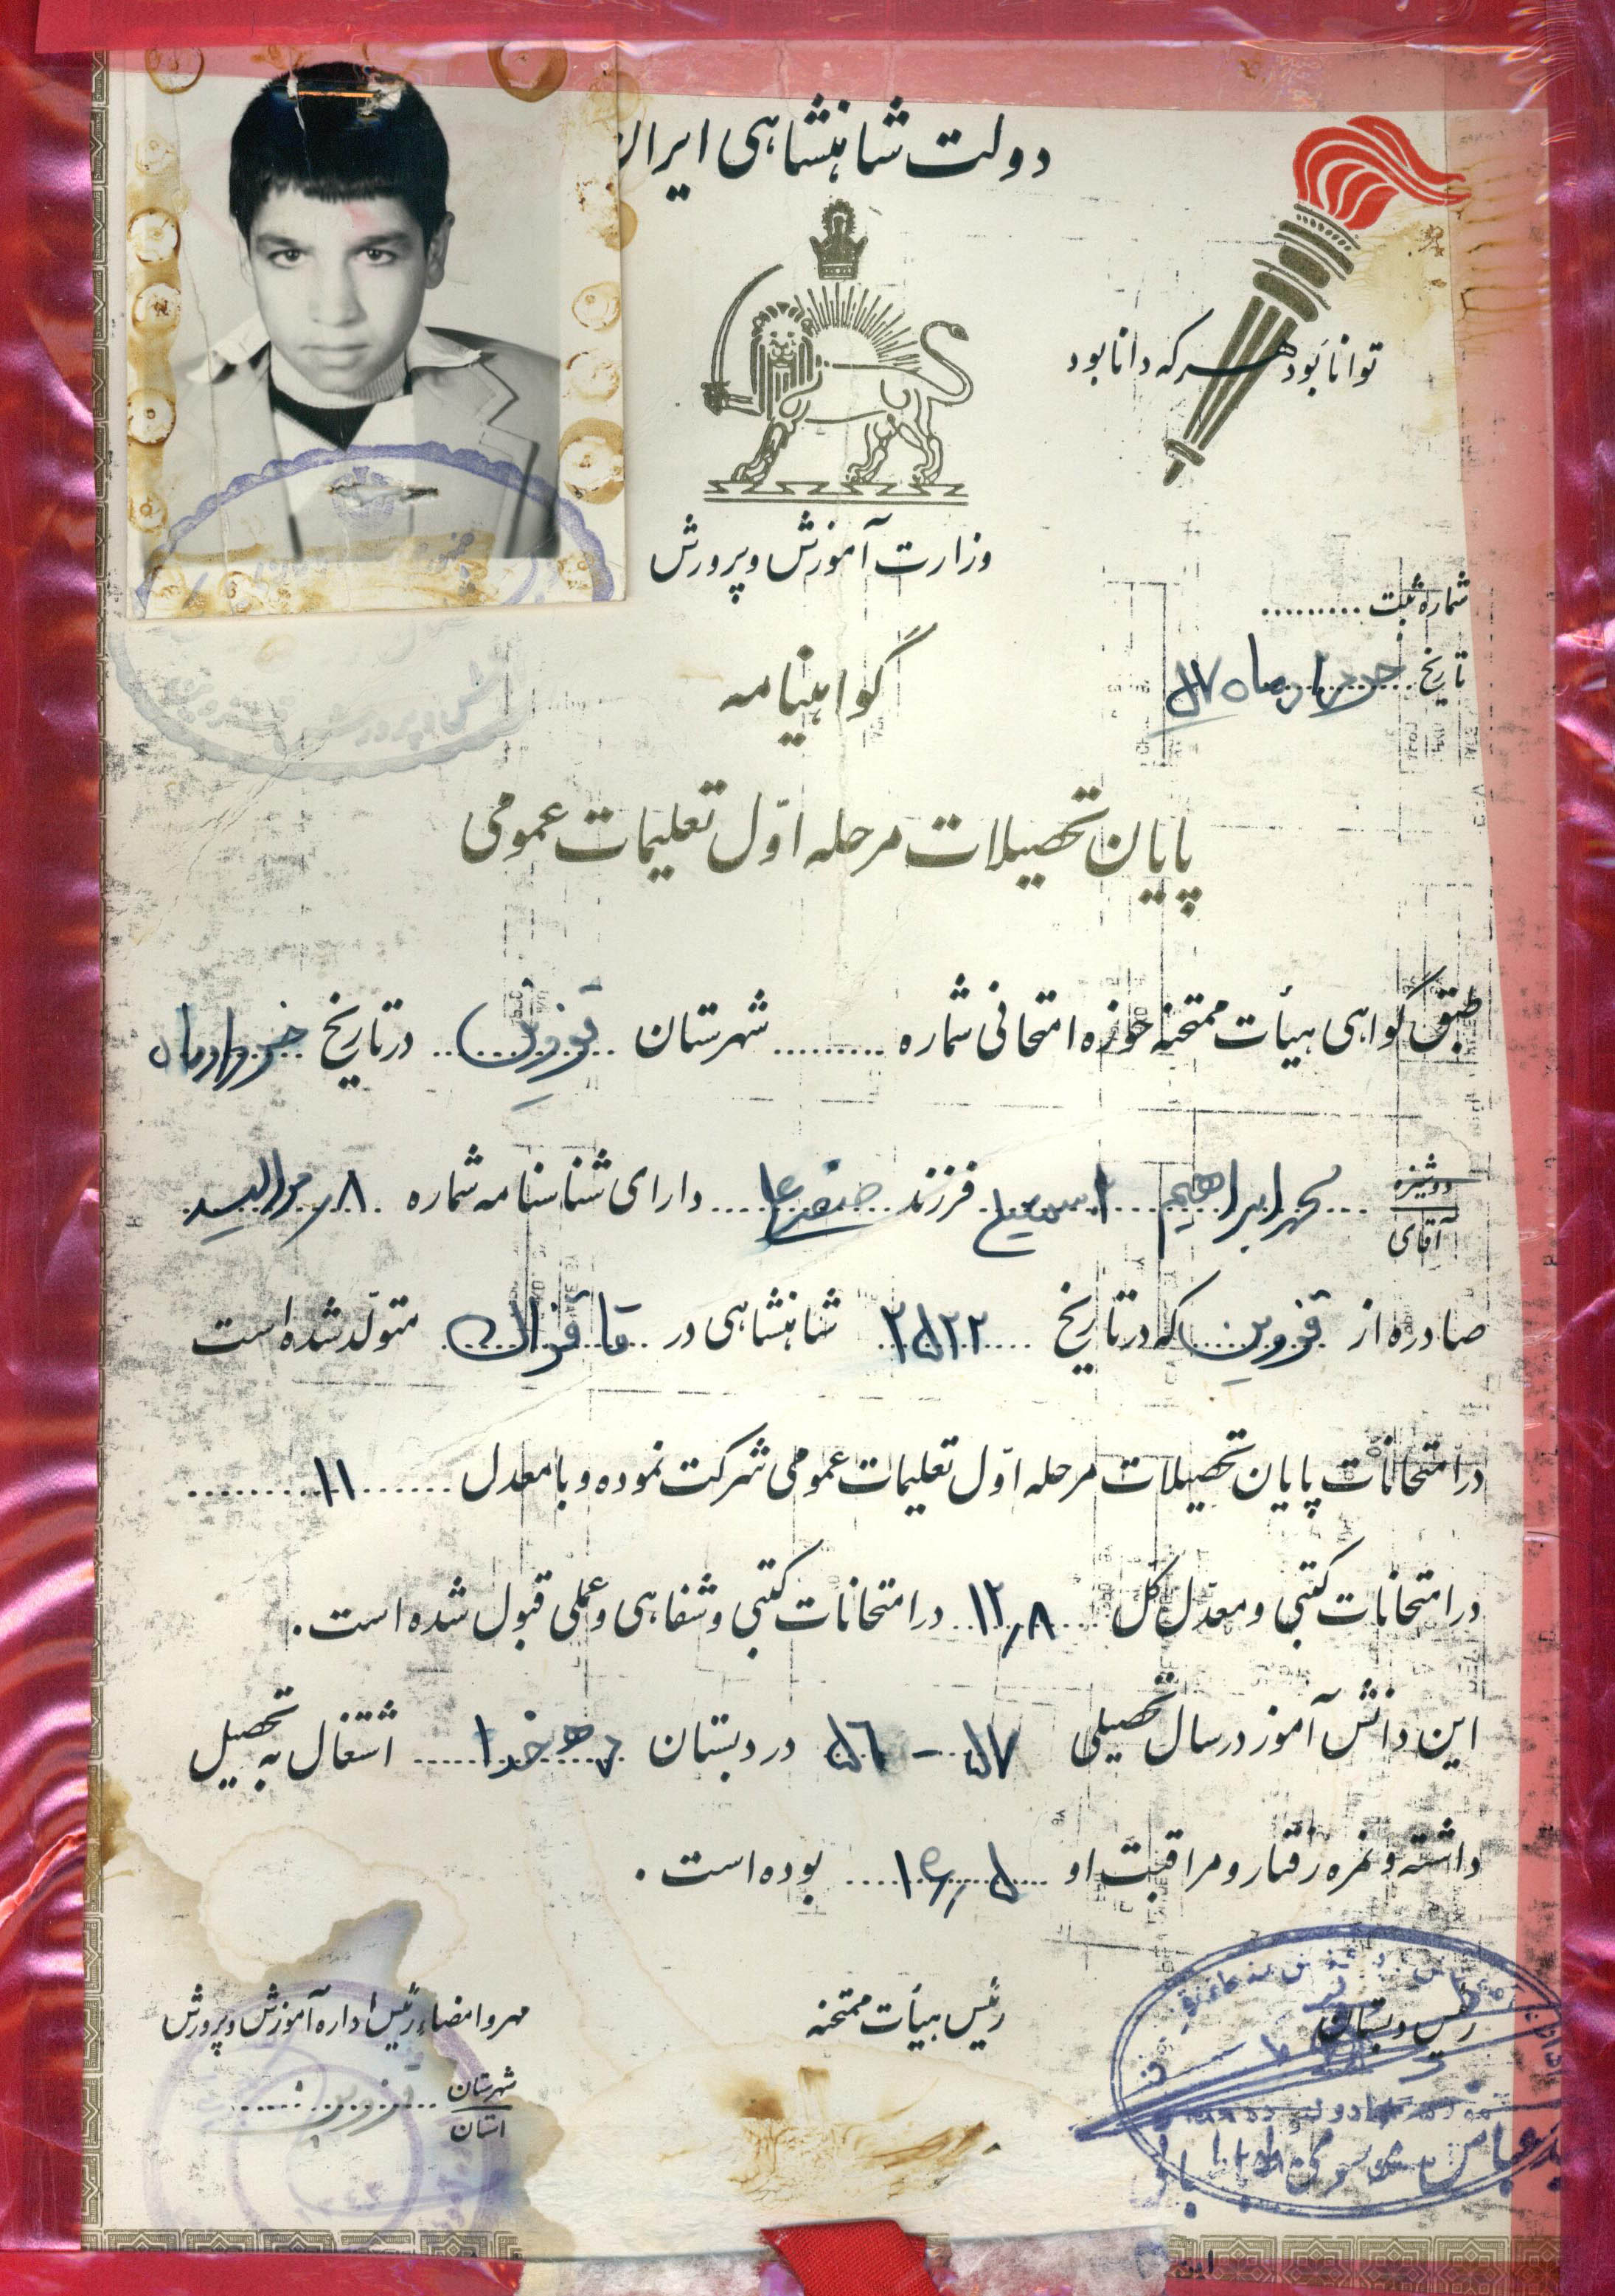 دولت شاهنشاهی ایران
توانا بود هر که دانا بود
وزارت آموزش و پرورش
شماره ثبت .........
تاریخ خردادماه ۵۷
گواهینامه
پایان تحصیلات مرحله اوّل تعلیمات عمومی
طبق گواهی هیأت ممتحنه حوزه امتحانی شماره ......... شهرستان قزوین در تاریخ خردادماه
دوشیزه
آقای
محمدابراهیم اسمعیلی فرزند صفرعلی دارای شناسنامه شماره ۸ر موالید
صادره از قزوین که در تاریخ ۲۵۲۲ شاهنشاهی در قاقزان متولّد شده است
در امتحانات پایان تحصیلات مرحله اوّل تعلیمات عمومی شرکت نموده و با معدل ۱۱
در امتحانات کتبی و معدّل کل ۱۲٫۸ در امتحانات کتبی و شفاهی و عملی قبول شده است.
این دانش آموز در سال تحصیلی ۵۷ - ۵۶ در دبستان دهخدا اشتغال به تحصیل
داشته و نمره رفتار و مراقبت او بوده است.
رئیس دبستان
رئیس هیأت ممتحنه
مهر و امضاء رئیس اداره آموزش و پرورش
شهرستان
استان
قزوین